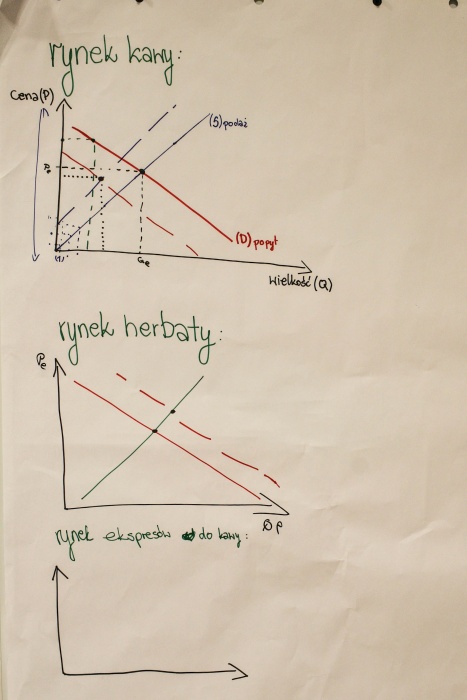 rynek kawy:
Cena(P)
(S) podaż
Pe
(D) popyt
Qe
Wielkość (Q)
rynek herbaty:
Pe
rynek ekspresów do kawy: